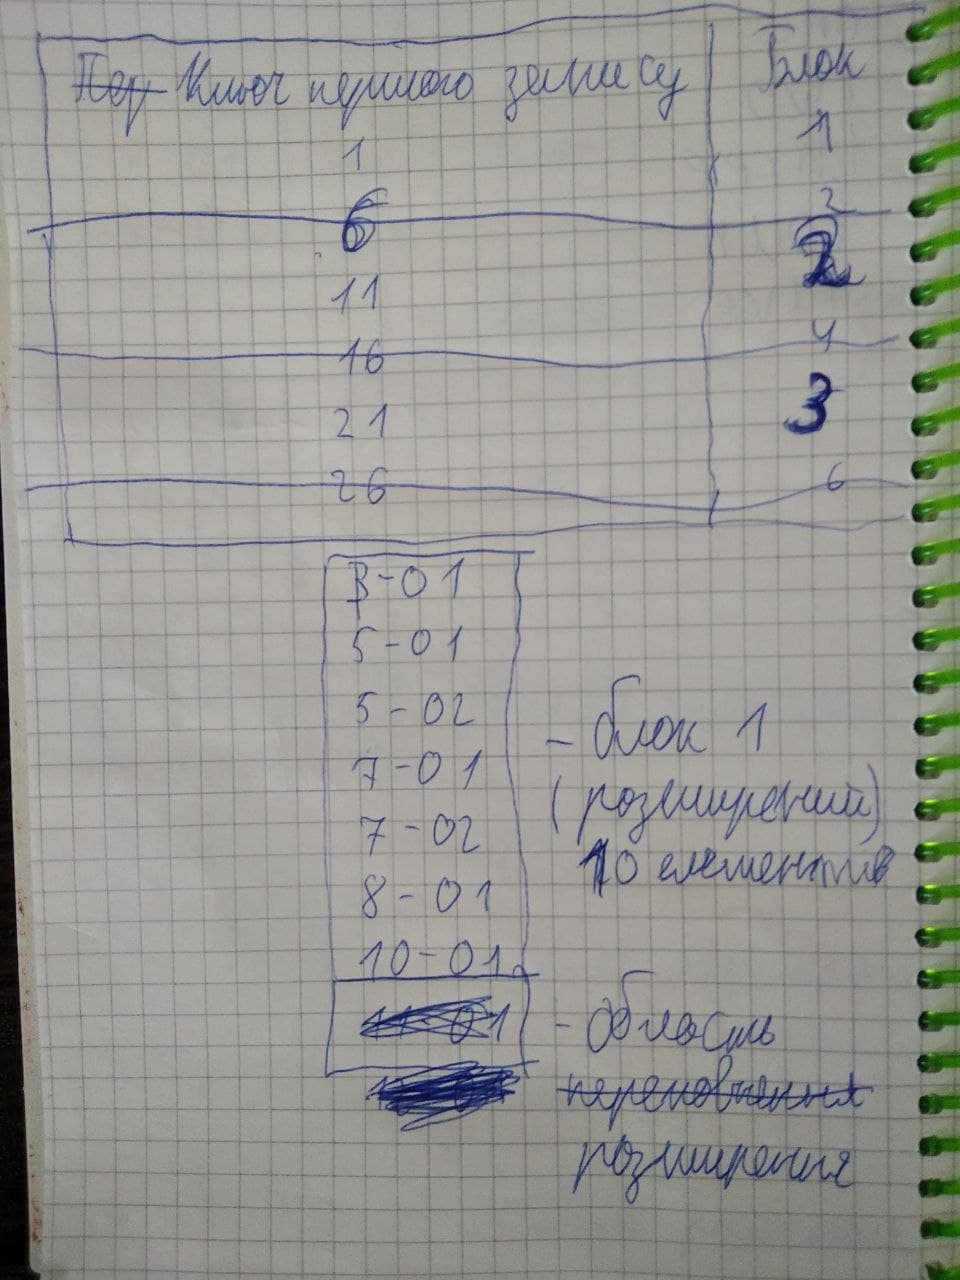 Пер Ключ першого запису Блок
1 1
6 2
2
11
16 4
21 3
26 6
3-01
5-01
5-02
7-01
7-02
8-01
10-01
- блок 1
(розширений)
10 елементів
01 - область
переповнення
розширення